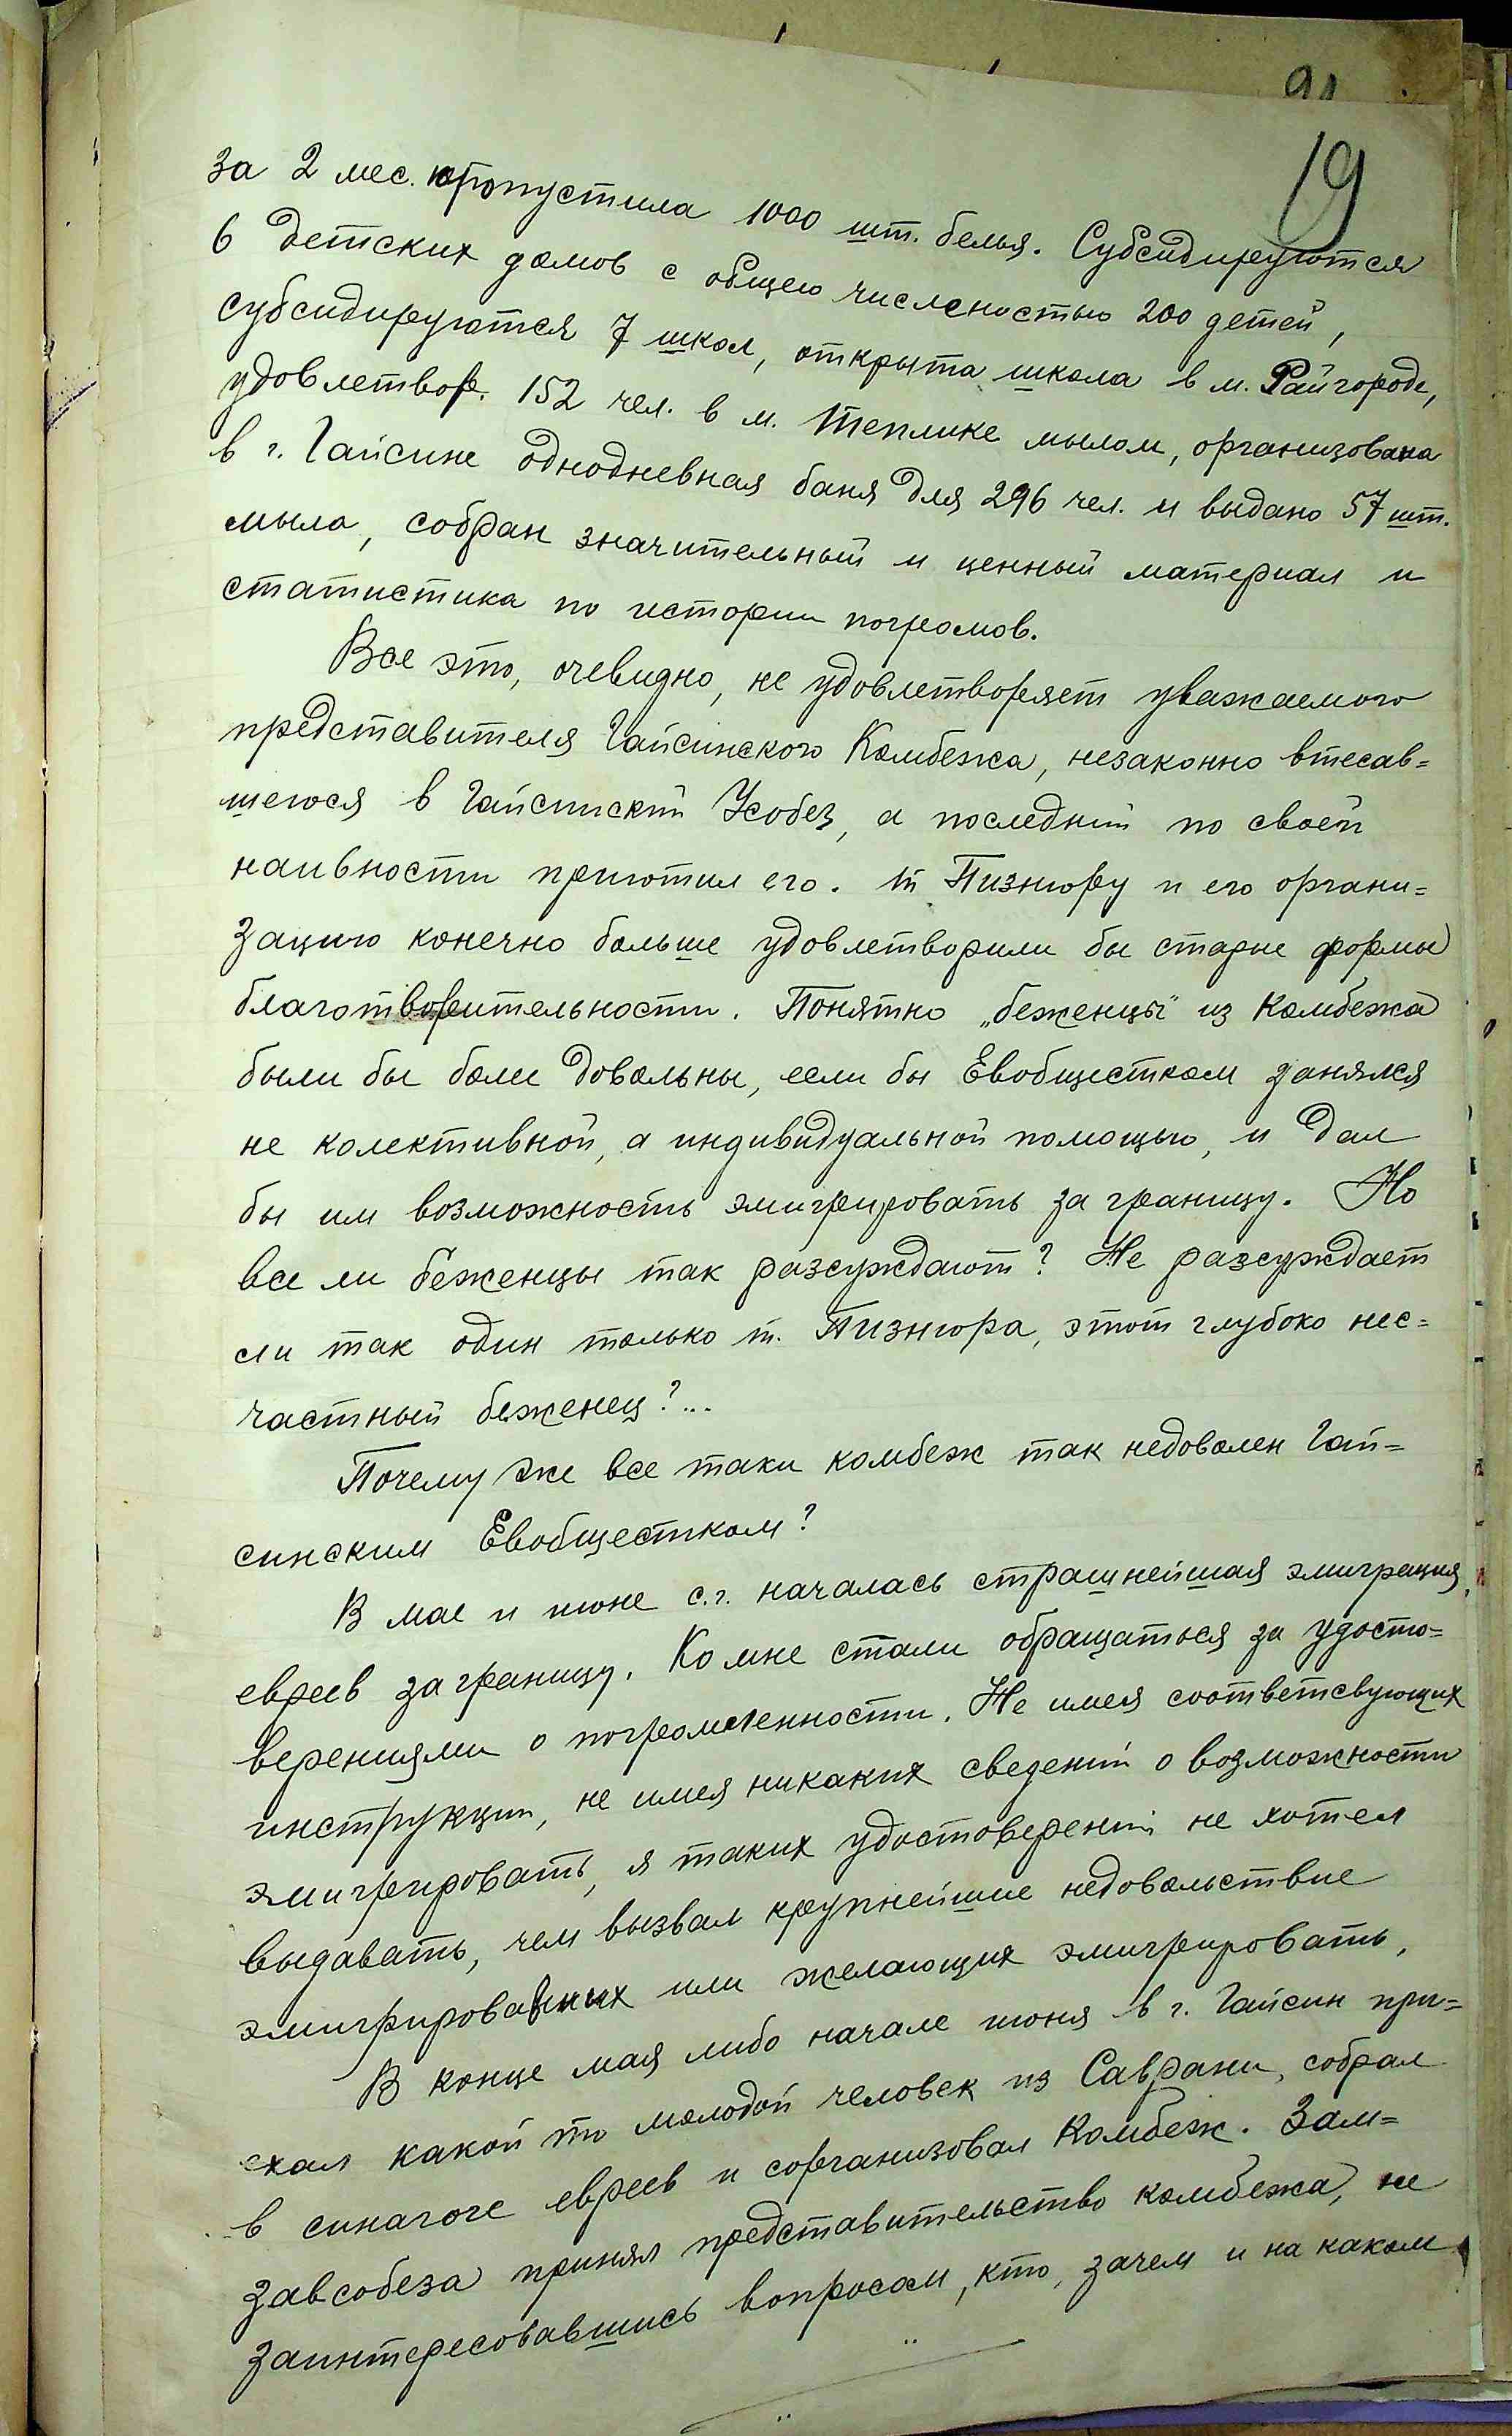 19
за 2 мес. пропустила 1000 шт. белья. Субсидируются
6 детских домов с общею численостью 200 детей,
субсидируются 7 школ, открыта школа в м. Райгороде,
удовлетвор. 152 чел. в м. Теплике мылом, организована
в г. Гайсине однодневная баня для 296 чел. и выдано 57 шт.
мыла, собран значительный и ценный материал и
статистика по истории погромов.
Все это, очевидно, не удовлетворяет уважаемого
представителя Гайсинского Комбежа, незаконно втесав=
шегося в Гайсинский Усобез, а последний по своей
наивности приютил его. т. Пизнюру и его органи=
зацию конечно больше удовлетворили бы старые формы
благотворительности. Понятно „беженцы" из Комбежа
были бы более довольны, если бы Евобщестком занялся
не колективной, а индивидуальной помощью, и дал
бы им возможность эмигрировать за границу. Но
все ли беженцы так разсуждают? Не разсуждает
ли так один только т. Пизнюра, этот глубоко нес=
частный беженец?...
Почему же все таки комбеж так недоволен Гай=
синским Евобщесткомом?
В мае и июне с.г. началась страшнейшая эмиграция
евреев заграницу. Ко мне стали обращаться за удосто=
верениями о погромленности. Не имея соответсвующих
инструкций, не имея никаких сведений о возможности
эмигрировать, я таких удостоверений не хотел
выдавать, чем вызвал крупнейшие недовольствие
эмигрированных или желающих эмигрировать,
В конце мая либо начале июня в г. Гайсин при=
ехал какой то молодой человек из Саврани, собрал
в синагоге евреев и сорганизовал Комбеж. Зам=
завсобеза принял представительство комбежа, не
заинтересовавшись вопросом, кто, зачем и на каком